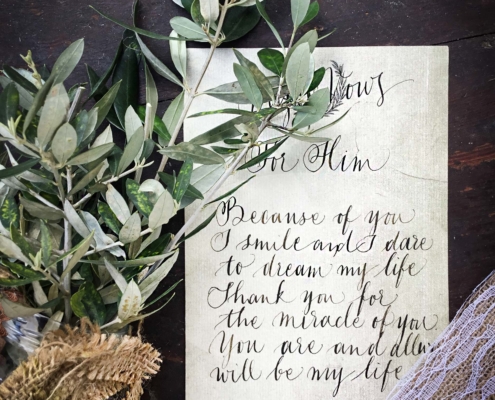 Vows
For Him
Because of you
I smile and I dare
to dream my life
Thank you for
the miracle of you
You are and allways
will be my life